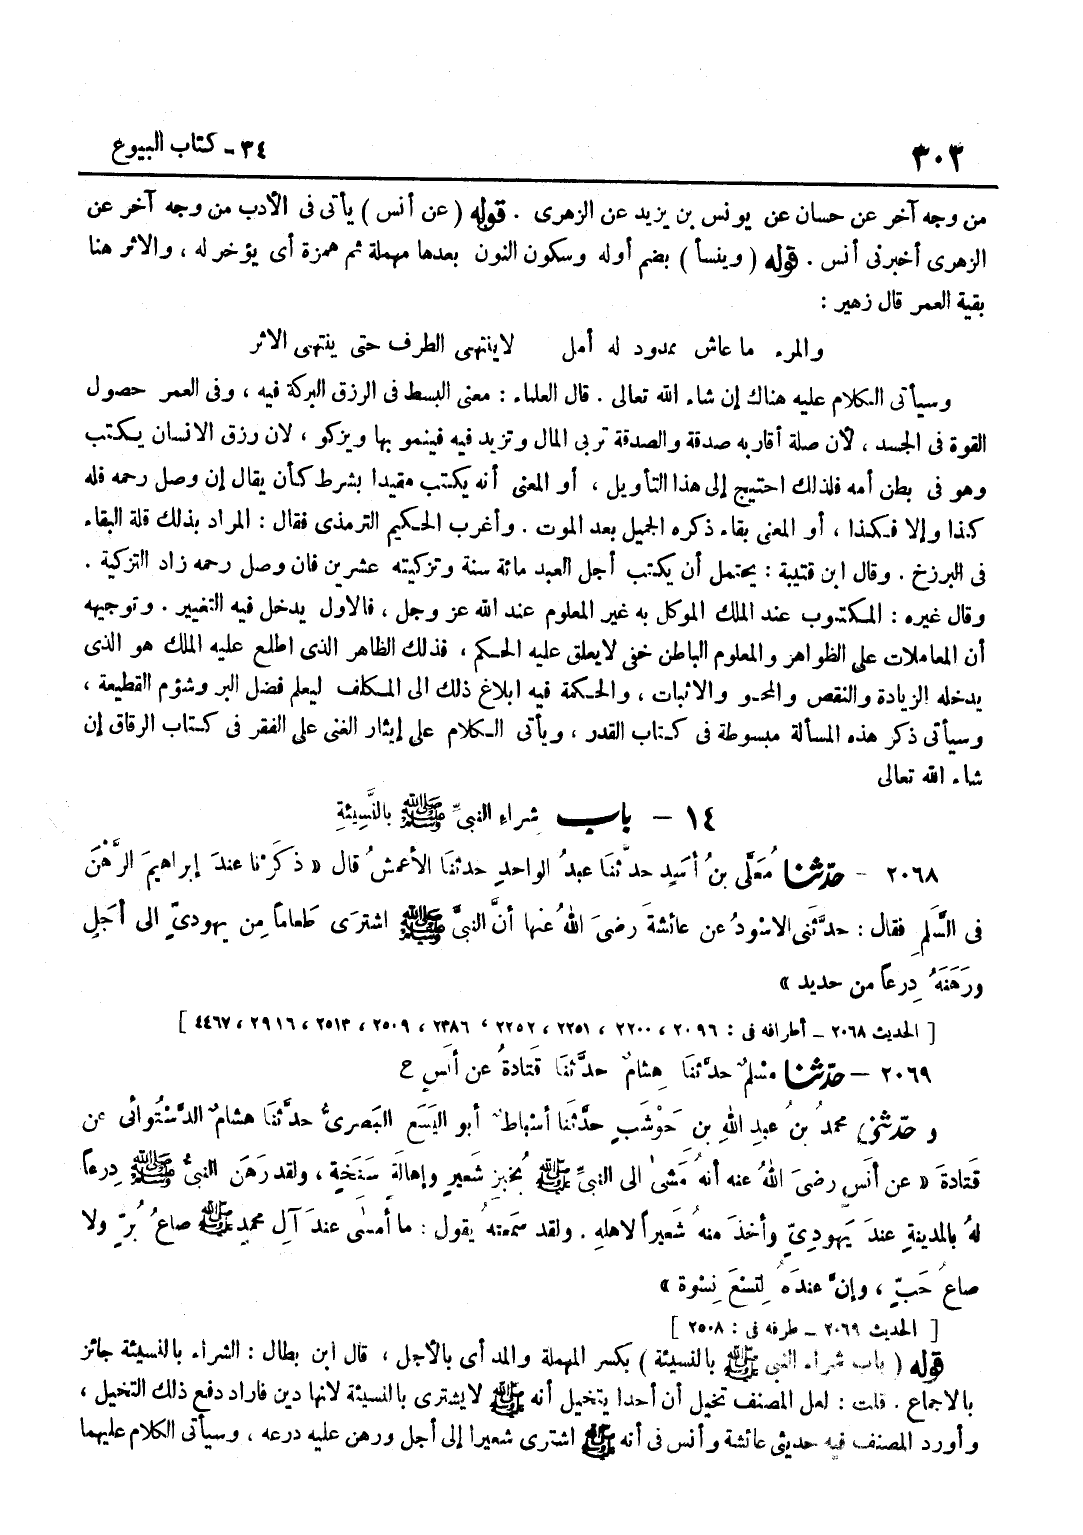 ٣٠٣
٣٤ - كتاب البيوع
من وجه آخر عن حسان عن يونس بن يزيد عن الزهرى . قوله ( عن أنس ) يأتى فى الأدب من وجه آخر عن
الزهرى أخبرنى أنس . قوله ( وينسأ ) بضم أوله وسكون النون بعدها مهملة ثم همزة أى يؤخر له ، والاثر هنا
بقية العمر قال زهير :
والمرء ما عاش ممدود له أمل لاينتهى الطرف حتى ينتهى الاثر
وسيأتى الكلام عليه هناك إن شاء الله تعالى . قال العلماء : معنى البسط فى الرزق البركة فيه ، وفى العمر حصول
القوة فى الجسد ، لأن صلة أقاربه صدقة والصدقة تربى المال وتزيد فيه فينمو بها ويزكو ، لان رزق الانسان يكتب
وهو فى بطن أمه فلذلك احتيج إلى هذا التأويل ، أو المعنى أنه يكتب مقيدا بشرط كأن يقال إن وصل رحمه فله
كذا وإلا فكذا ، أو المعنى بقاء ذكره الجميل بعد الموت . وأغرب الحكيم الترمذى فقال : المراد بذلك قلة البقاء
فى البرزخ . وقال ابن قتيبة : يحتمل أن يكتب أجل العبد مائة سنة وتزكيته عشرين فان وصل رحمه زاد التزكية .
وقال غيره : المكتوب عند الملك الموكل به غير المعلوم عند الله عز وجل ، فالاول يدخل فيه التغيير . وتوجيهه
أن المعاملات على الظواهر والمعلوم الباطن خفى لايعلق عليه الحكم ، فذلك الظاهر الذى اطلع عليه الملك هو الذى
يدخله الزيادة والنقص والمحو والاثبات ، والحكمة فيه ابلاغ ذلك الى المكلف ليعلم فضل البر وشؤم القطيعة ،
وسيأتى ذكر هذه المسألة مبسوطة فى كتاب القدر ، ويأتى الكلام على إيثار الغنى على الفقر فى كتاب الرقاق إن
شاء الله تعالى
١٤ - باب شراءِ النبىِّ ﷺ بالنَّسِيئةِ
٢٠٦٨ - حدّثنا مُعَلَّى بنُ أسَيدٍ حدَّثنَا عبدُ الواحدِ حدثنَا الأعمشُ قال « ذكَرْنا عندَ إبراهيمَ الرَّهْنَ
فى السَّلَمِ فقال : حدَّثنى الاسْودُ عن عائشةَ رضىَ اللهُ عنها أنَّ النبىَّ ﷺ اشترَى طَعاماً مِن يهودىٍّ الى أجَلٍ
ورَهَنَهُ دِرعاً من حديد »
[ الحديث ٢٠٦٨ - أطرافه فى : ٢٠٩٦ ، ٢٢٠٠ ، ٢٢٥١ ، ٢٢٥٢ ، ٢٣٨٦ ، ٢٥٠٩ ، ٢٥١٣ ، ٢٩١٦ ، ٤٤٦٧ ]
٢٠٦٩ - حدّثنا مسْلمٌ حدَّثنَا هِشامٌ حدَّثنَا قَتادةُ عن أنَسٍ ح
و حدّثنى محمدُ بنُ عبدِ اللهِ بنِ حَوْشَبٍ حدَّثنَا أسْباطٌ أبو اليَسَعِ البَصرىُّ حدَّثنَا هشامٌ الدَّسْتُوائى عن
قَتادةَ « عن أنَسٍ رضىَ اللهُ عنه أنهُ مَشىٰ الى النبىِّ ﷺ بخُبزِ شَعيرٍ وإهالَةٍ سَنَخِةٍ ، ولقد رَهَن النبىُّ ﷺ دِرعاً
لهُ بالمدينةِ عندَ يَهودىٍّ وأخذَ منهُ شَعيراً لاهلهِ . ولقد سَمعتهُ يقول : ما أمسٰى عندَ آلِ محمدٍ ﷺ صاعُ بُرٍّ ولا
صاعُ حَبٍّ ، وإنَّ عندَهُ لتِسْعَ نِسْوة »
[ الحديث ٢٠٦٩ - طرفه فى : ٢٥٠٨ ]
قوله ( باب شراء النبى ﷺ بالنسيئة ) بكسر المهملة والمد أى بالأجل ، قال ابن بطال : الشراء بالنسيئة جائز
بالاجماع . قلت : لعل المصنف تخيل أن أحدا يتخيل أنه ﷺ لايشترى بالنسيئة لانها دين فاراد دفع ذلك التخيل ،
وأورد المصنف فيه حديثى عائشة وأنس فى أنه ﷺ اشترى شعيرا إلى أجل ورهن عليه درعه ، وسيأتى الكلام عليهما